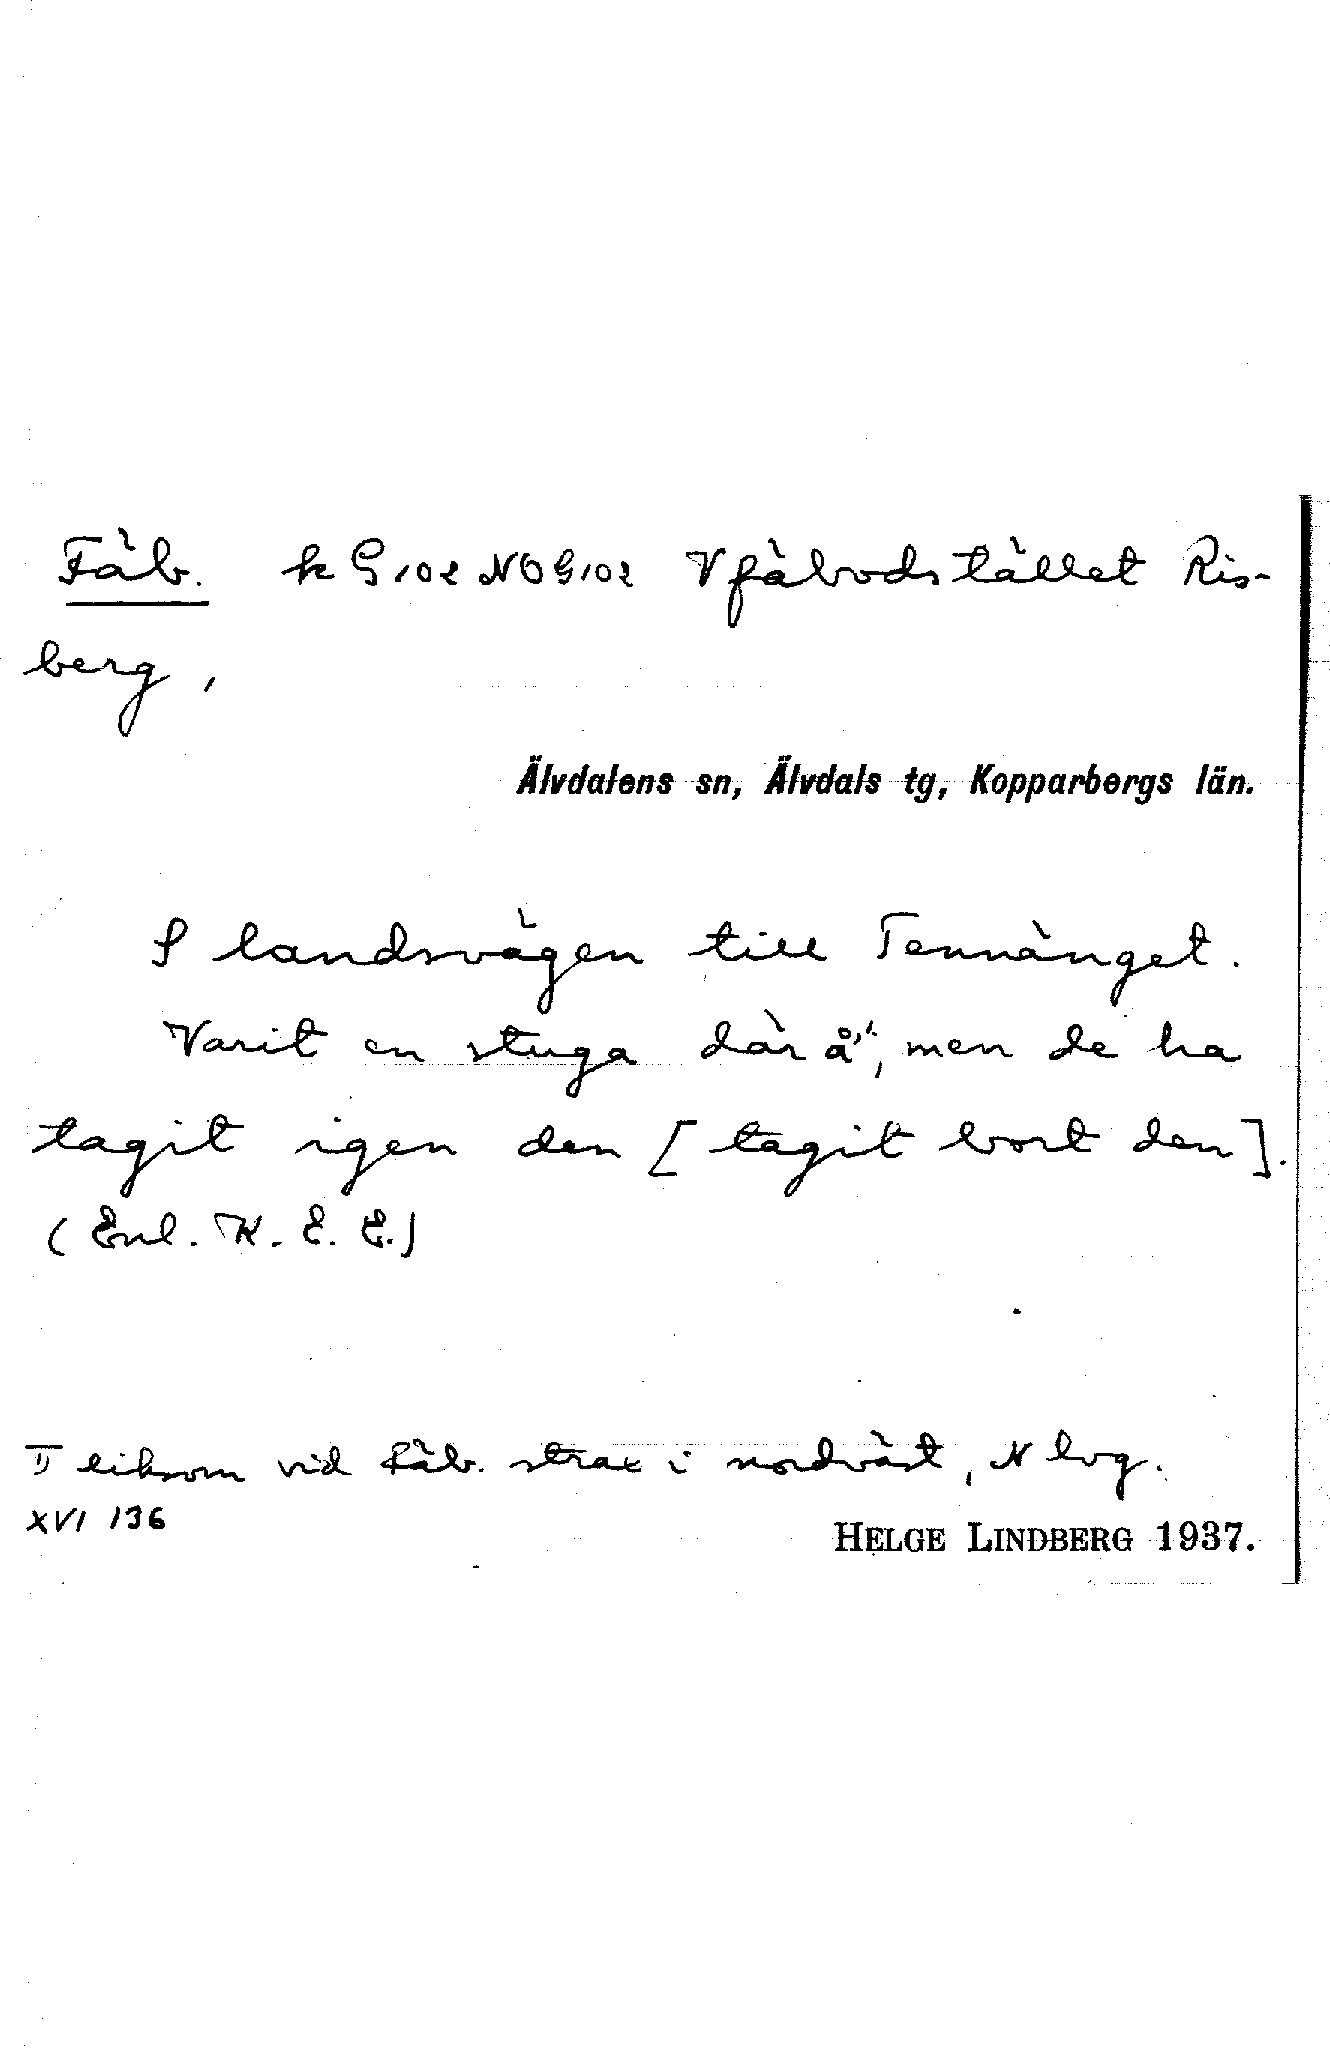 Fäb. k G102 NO G102 V fäbodstället Ris-
berg,
Älvdalens sn, Älvdals tg, Kopparbergs län.
S landsvägen till Tennänget.
Varit en stuga där å", men de ha
tagit igen den [tagit bort den].
(Enl. K. E. E.)
liksom vid Fäb. strax i nordväst, N lvg.
XVI 136
HELGE LINDBERG 1937.